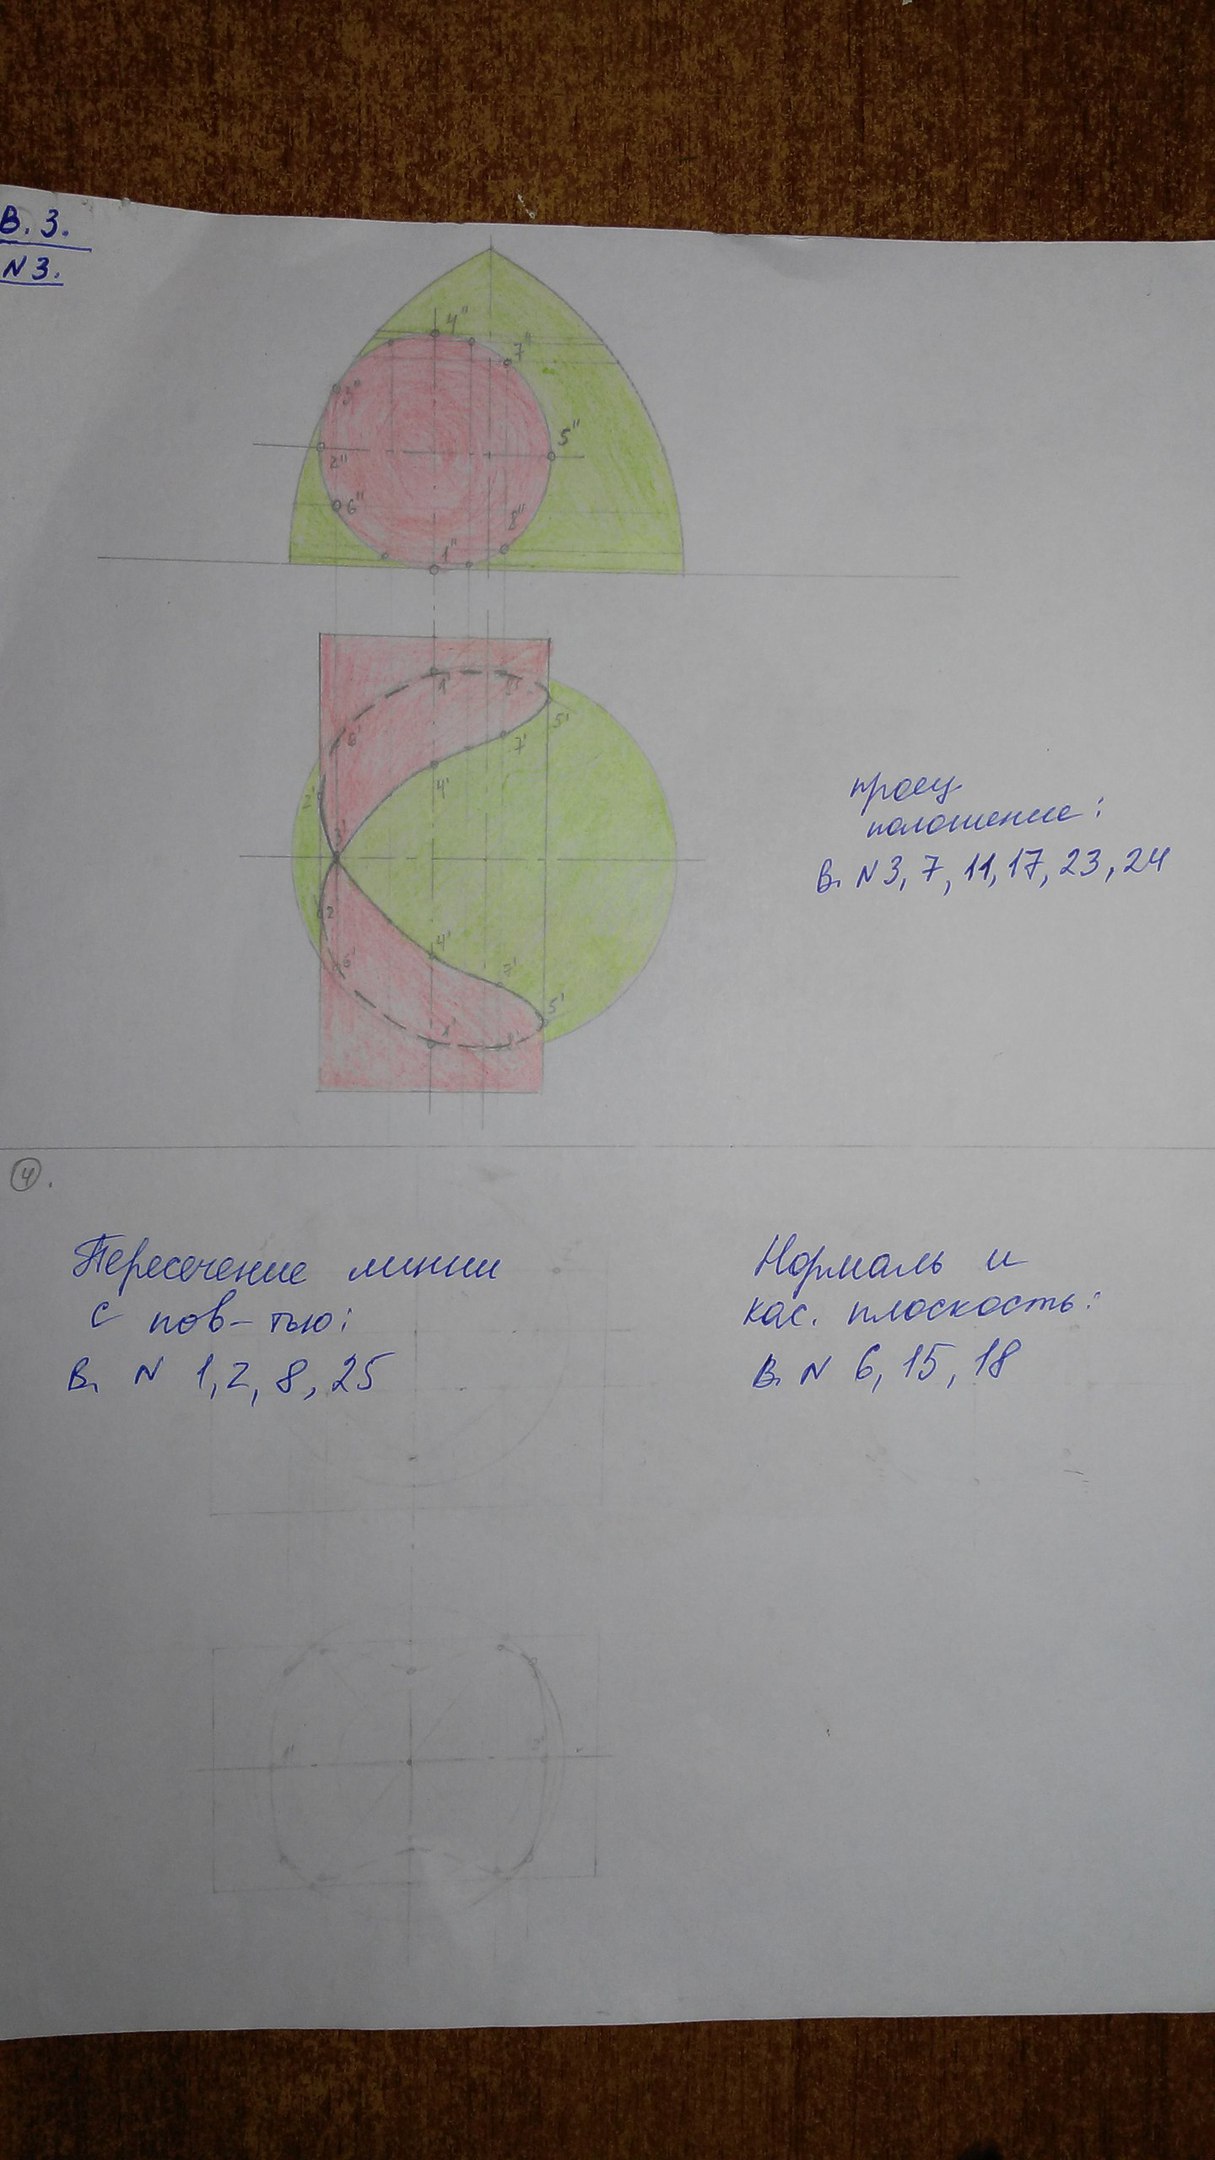 В. 3.
N 3.
4"
7"
3"
5"
2"
6"
8"
1"
1'
8'
5'
6'
7'
4'
2'
3'
проец.
положение:
В. N 3, 7, 11, 17, 23, 24
2'
4'
6'
7'
5'
1'
8'
4.
Пересечение линии
с пов-тью:
В. N 1, 2, 8, 25
Нормаль и
кас. плоскость:
В. N 6, 15, 18